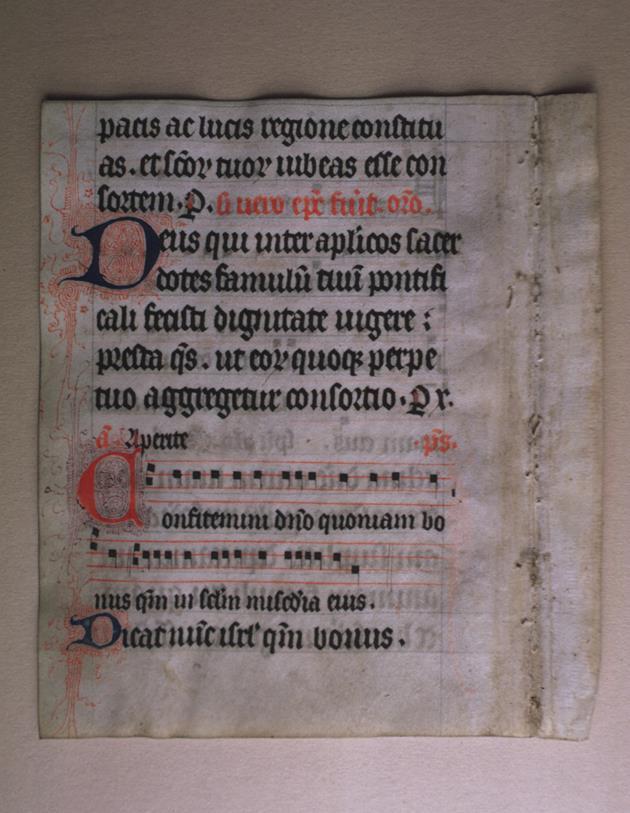 pacis ac lucis regione constitu
as. et scõꝝ tuoꝝ iubeas esse con
sortem. P. si uero epc̃ fuit. orõ.
Deus qui inter aplicos sacer
dotes famulũ tuũ pontifi
cali fecisti dignitate uigere :
presta q̃s. ut eoꝝ quoqꝫ perpe
tuo aggregetur consortio. P x.
a. Aperite ps̃.
Confitemini dño quoniam bo
nus qm̃ in sclm̃ miscdĩa eius.
Dicat nũc isrl̃ qm̃ bonus.